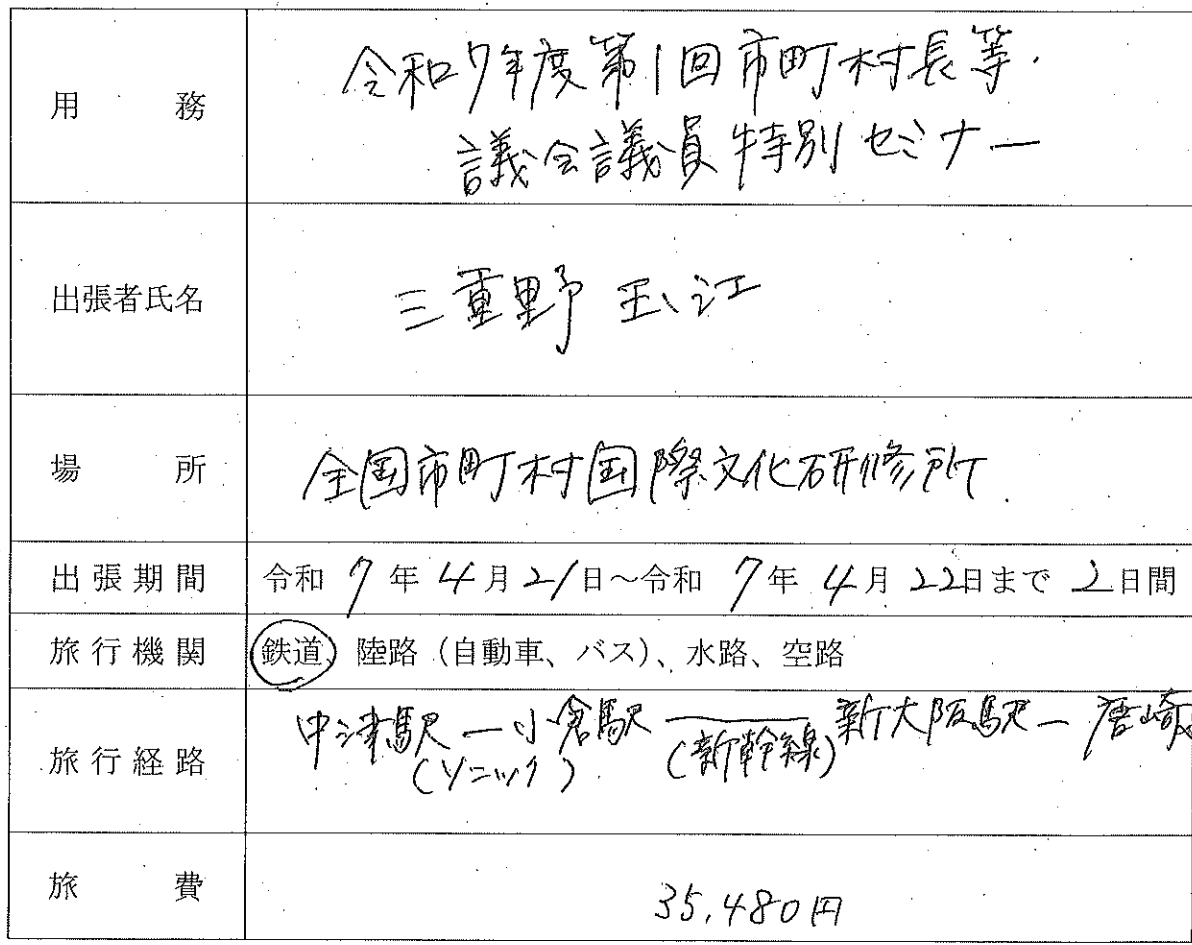 用務
令和7年度第1回市町村長等・
議会議員特別セミナー
出張者氏名
三重野 玉江
場所
全国市町村国際文化研修所
出張期間
令和 7 年 4 月 21 日～令和 7 年 4 月 22 日まで 2 日間
旅行機関
鉄道、陸路（自動車、バス）、水路、空路
旅行経路
中津駅 ー 小倉駅 ー 新大阪駅 ー 唐崎
(ソニック) (新幹線)
旅費
35,480円